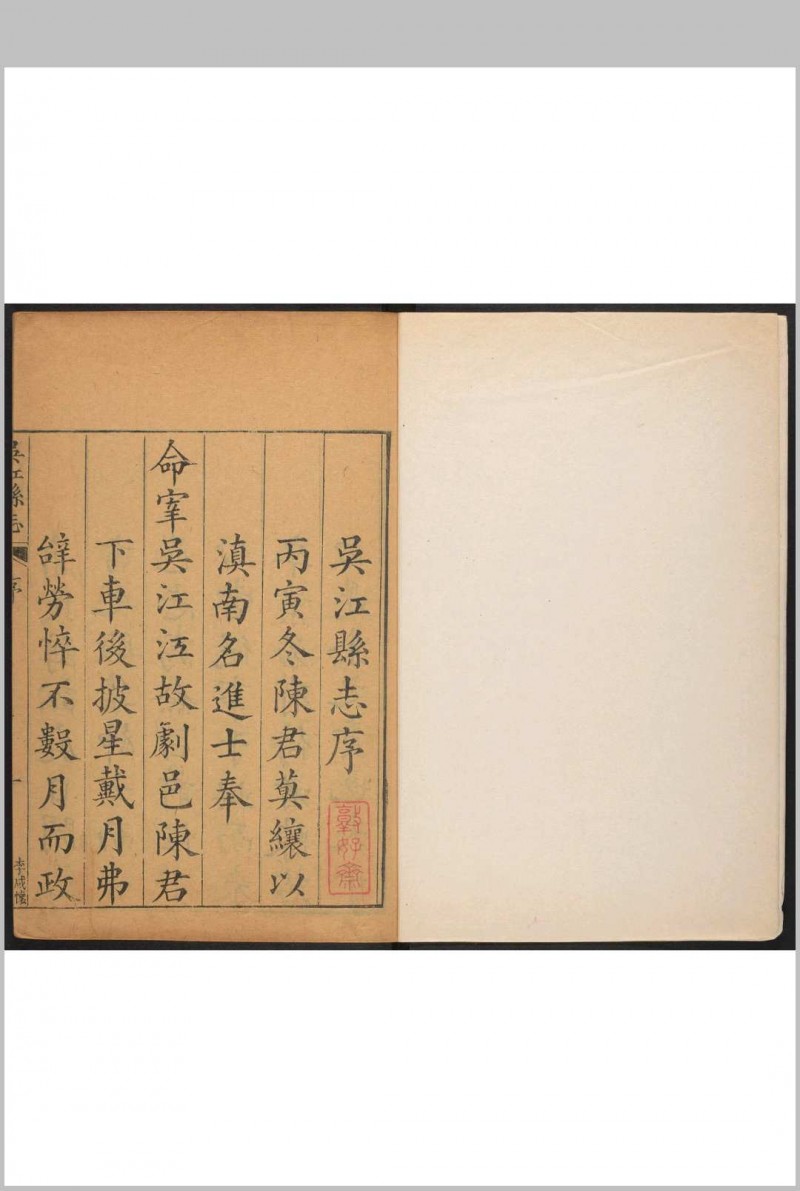 吳江縣志序
丙寅冬陳君䔥纕以
滇南名進士奉
命宰吳江江故劇邑陳君
下車後披星戴月弗
辝勞悴不數月而政
吳江縣志
序
一